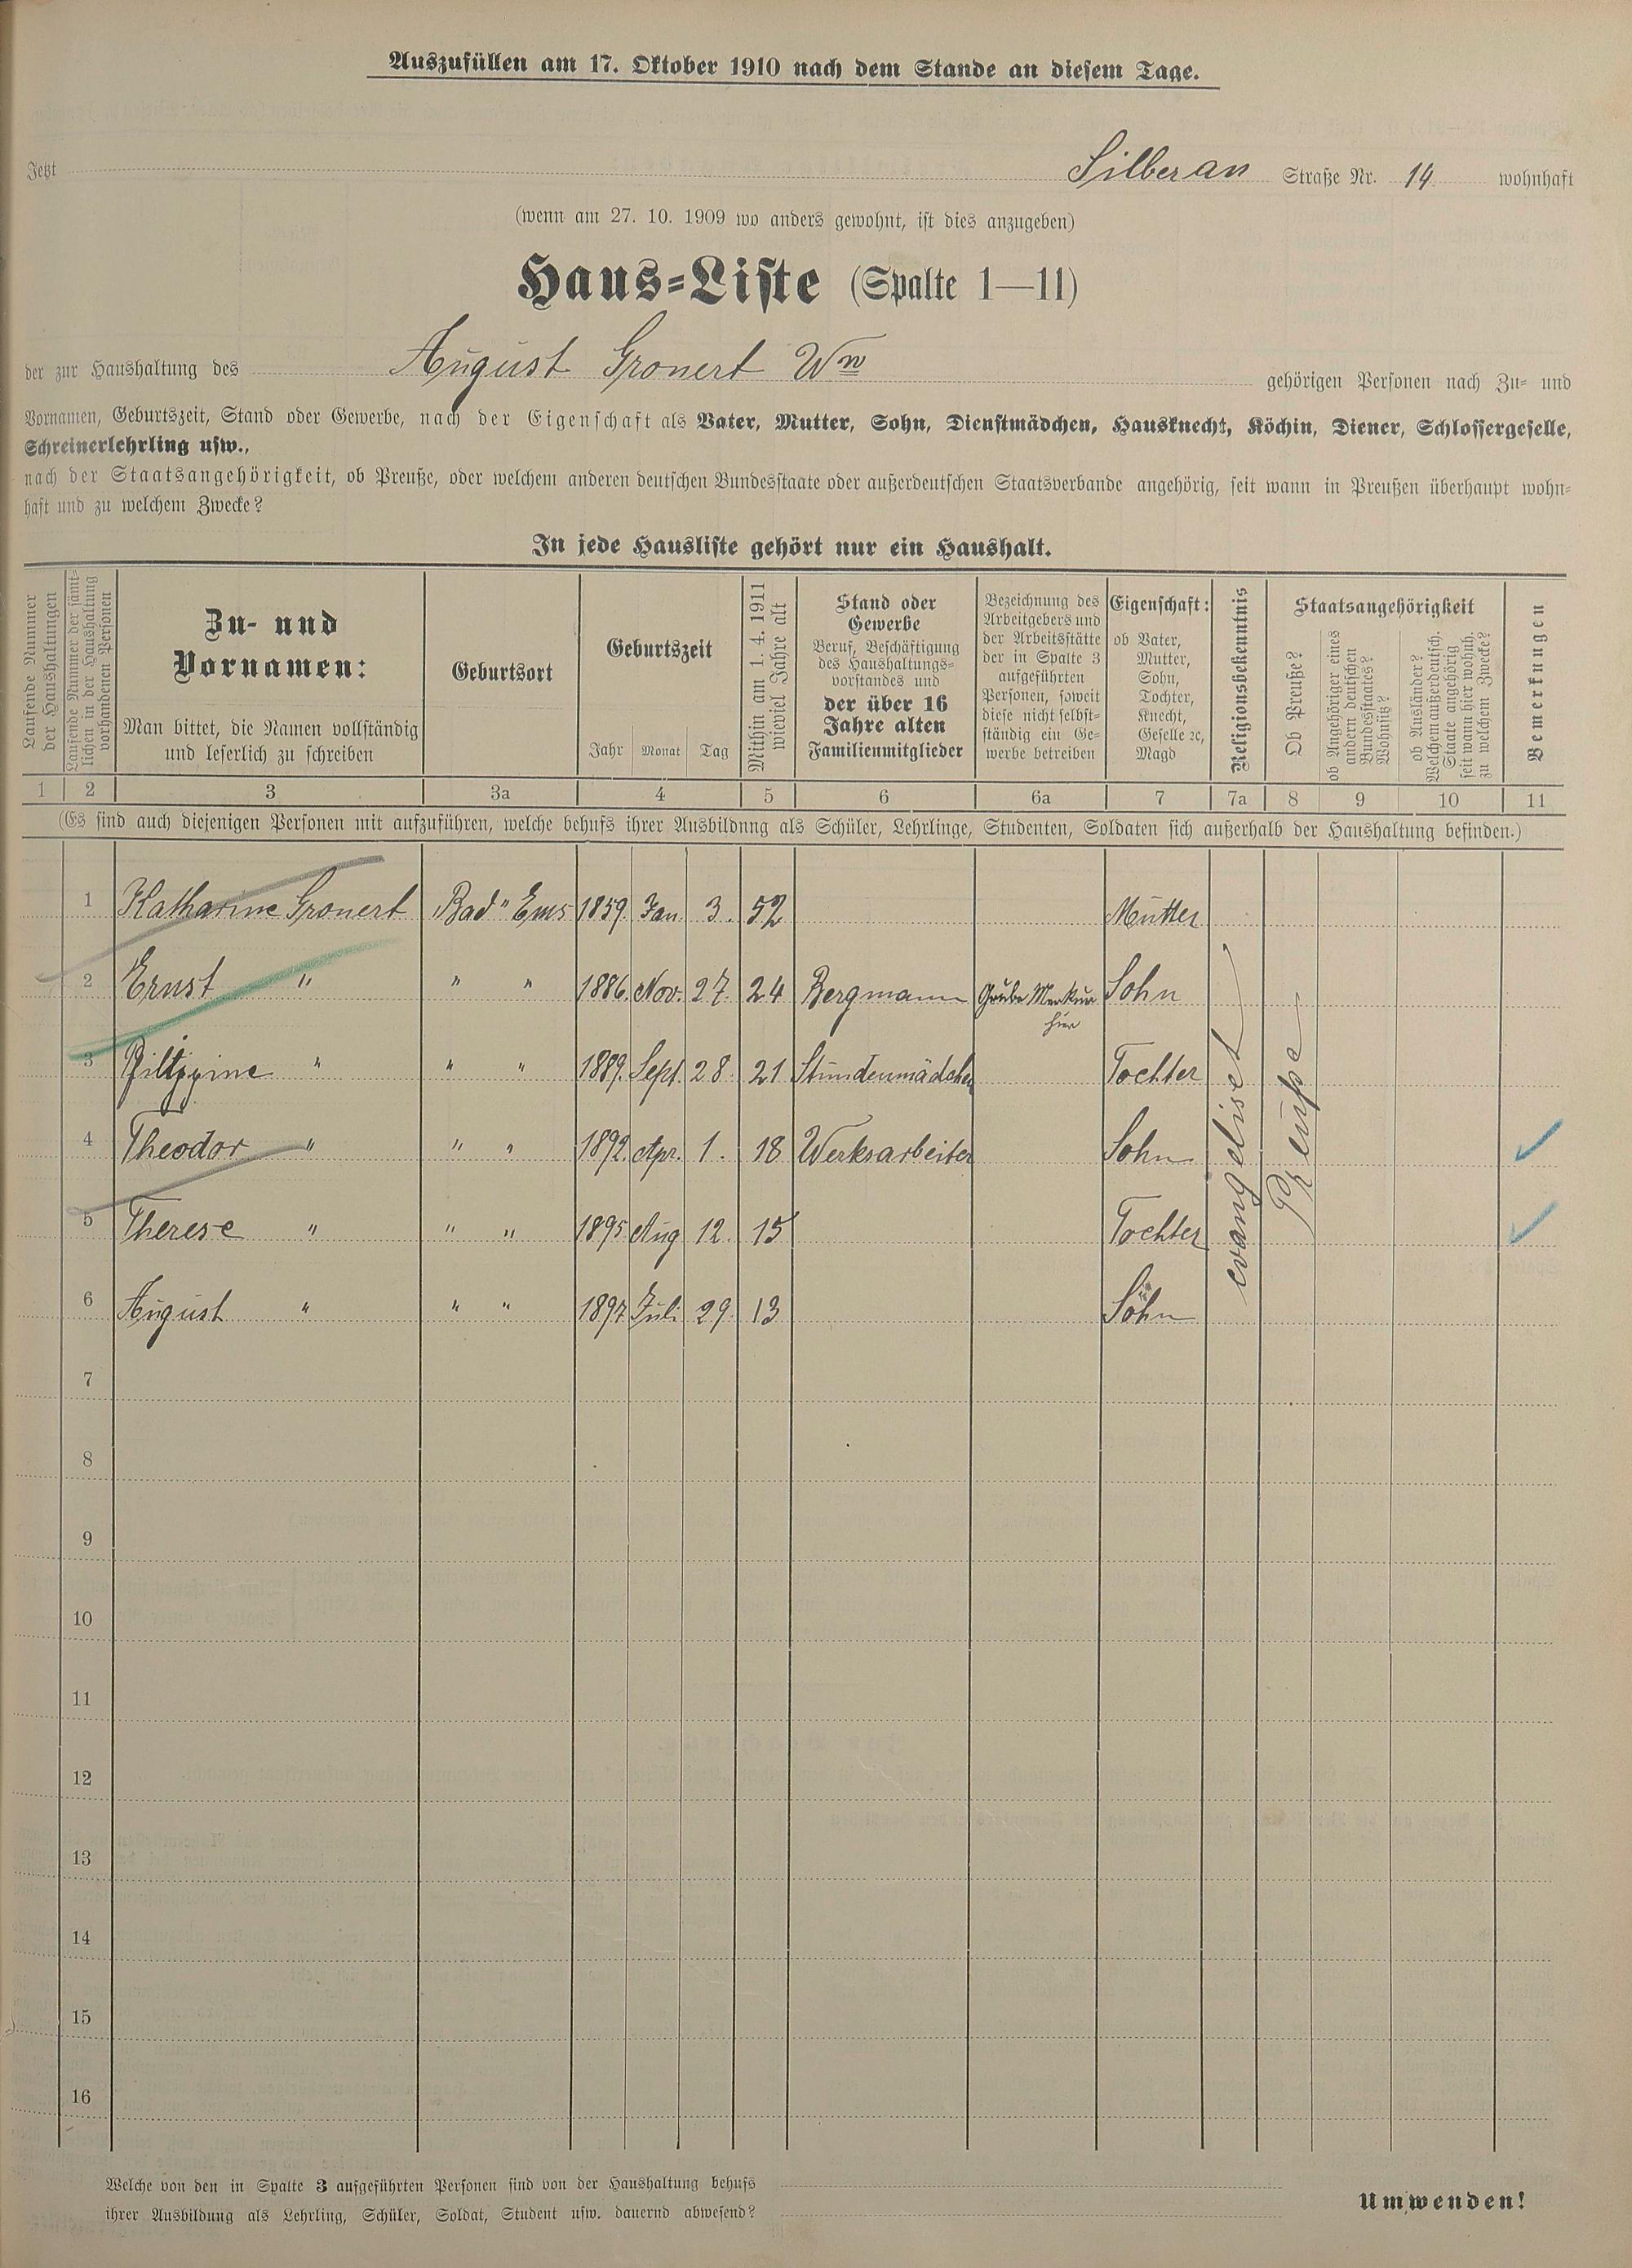 Auszufüllen am 17. Oktober 1910 nach dem Stande an diesem Tage.
Jetzt Silberau Straße Nr. 14 wohnhaft
(wenn am 27. 10. 1909 wo anders gewohnt, ist dies anzugeben)
Haus-Liste (Spalte 1—11)
der zur Haushaltung des August Gronert Ww gehörigen Personen nach Zu- und
Vornamen, Geburtszeit, Stand oder Gewerbe, nach der Eigenschaft als Vater, Mutter, Sohn, Dienstmädchen, Hausknecht, Köchin, Diener, Schlossergeselle,
Schreinerlehrling usw.,
nach der Staatsangehörigkeit, ob Preuße, oder welchem anderen deutschen Bundesstaate oder außerdeutschen Staatsverbande angehörig, seit wann in Preußen überhaupt wohn-
haft und zu welchem Zwecke?
In jede Hausliste gehört nur ein Haushalt.
Laufende Nummer
der Haushaltungen
Laufende Nummer der sämt-
lichen in der Haushaltung
vorhandenen Personen
Zu- und
Vornamen:
Man bittet, die Namen vollständig
und leserlich zu schreiben
Geburtsort
Geburtszeit
Jahr Monat Tag
Mithin am 1. 4. 1911
wieviel Jahre alt
Stand oder
Gewerbe
Beruf, Beschäftigung
des Haushaltungs-
vorstandes und
der über 16
Jahre alten
Familienmitglieder
Bezeichnung des
Arbeitgebers und
der Arbeitsstätte
der in Spalte 3
aufgeführten
Personen, soweit
diese nicht selbst-
ständig ein Ge-
werbe betreiben
Eigenschaft:
ob Vater,
Mutter,
Sohn,
Tochter,
Knecht,
Geselle ec,
Magd
Religionsbekenntnis
Staatsangehörigkeit
Ob Preuße?
ob Angehöriger eines
andern deutschen
Bundesstaates?
Wohnsitz?
ob Ausländer?
Welchem außerdeutsch.
Staate angehörig
seit wann hier wohnh.
zu welchem Zwecke?
Bemerkungen
1 2 3 3a 4 5 6 6a 7 7a 8 9 10 11
(Es sind auch diejenigen Personen mit aufzuführen, welche behufs ihrer Ausbildung als Schüler, Lehrlinge, Studenten, Soldaten sich außerhalb der Haushaltung befinden.)
1 Katharine Gronert Bad " Ems 1859. Jan. 3. 52 Mutter
2 Ernst " " " 1886. Nov. 27. 24 Bergmann Grube Merkur Sohn
hier
3 Philippine " " " 1889. Sept. 28. 21 Stundenmädchen Tochter
4 Theodor " " " 1892. Apr. 1. 18 Werksarbeiter Sohn
5 Therese " " " 1895 Aug 12. 15 Tochter
6 August " " " 1897 Juli 29. 13 Sohn
evangelisch
Preuße
7
8
9
10
11
12
13
14
15
16
Welche von den in Spalte 3 aufgeführten Personen sind von der Haushaltung behufs
ihrer Ausbildung als Lehrling, Schüler, Soldat, Student usw. dauernd abwesend?
Umwenden!